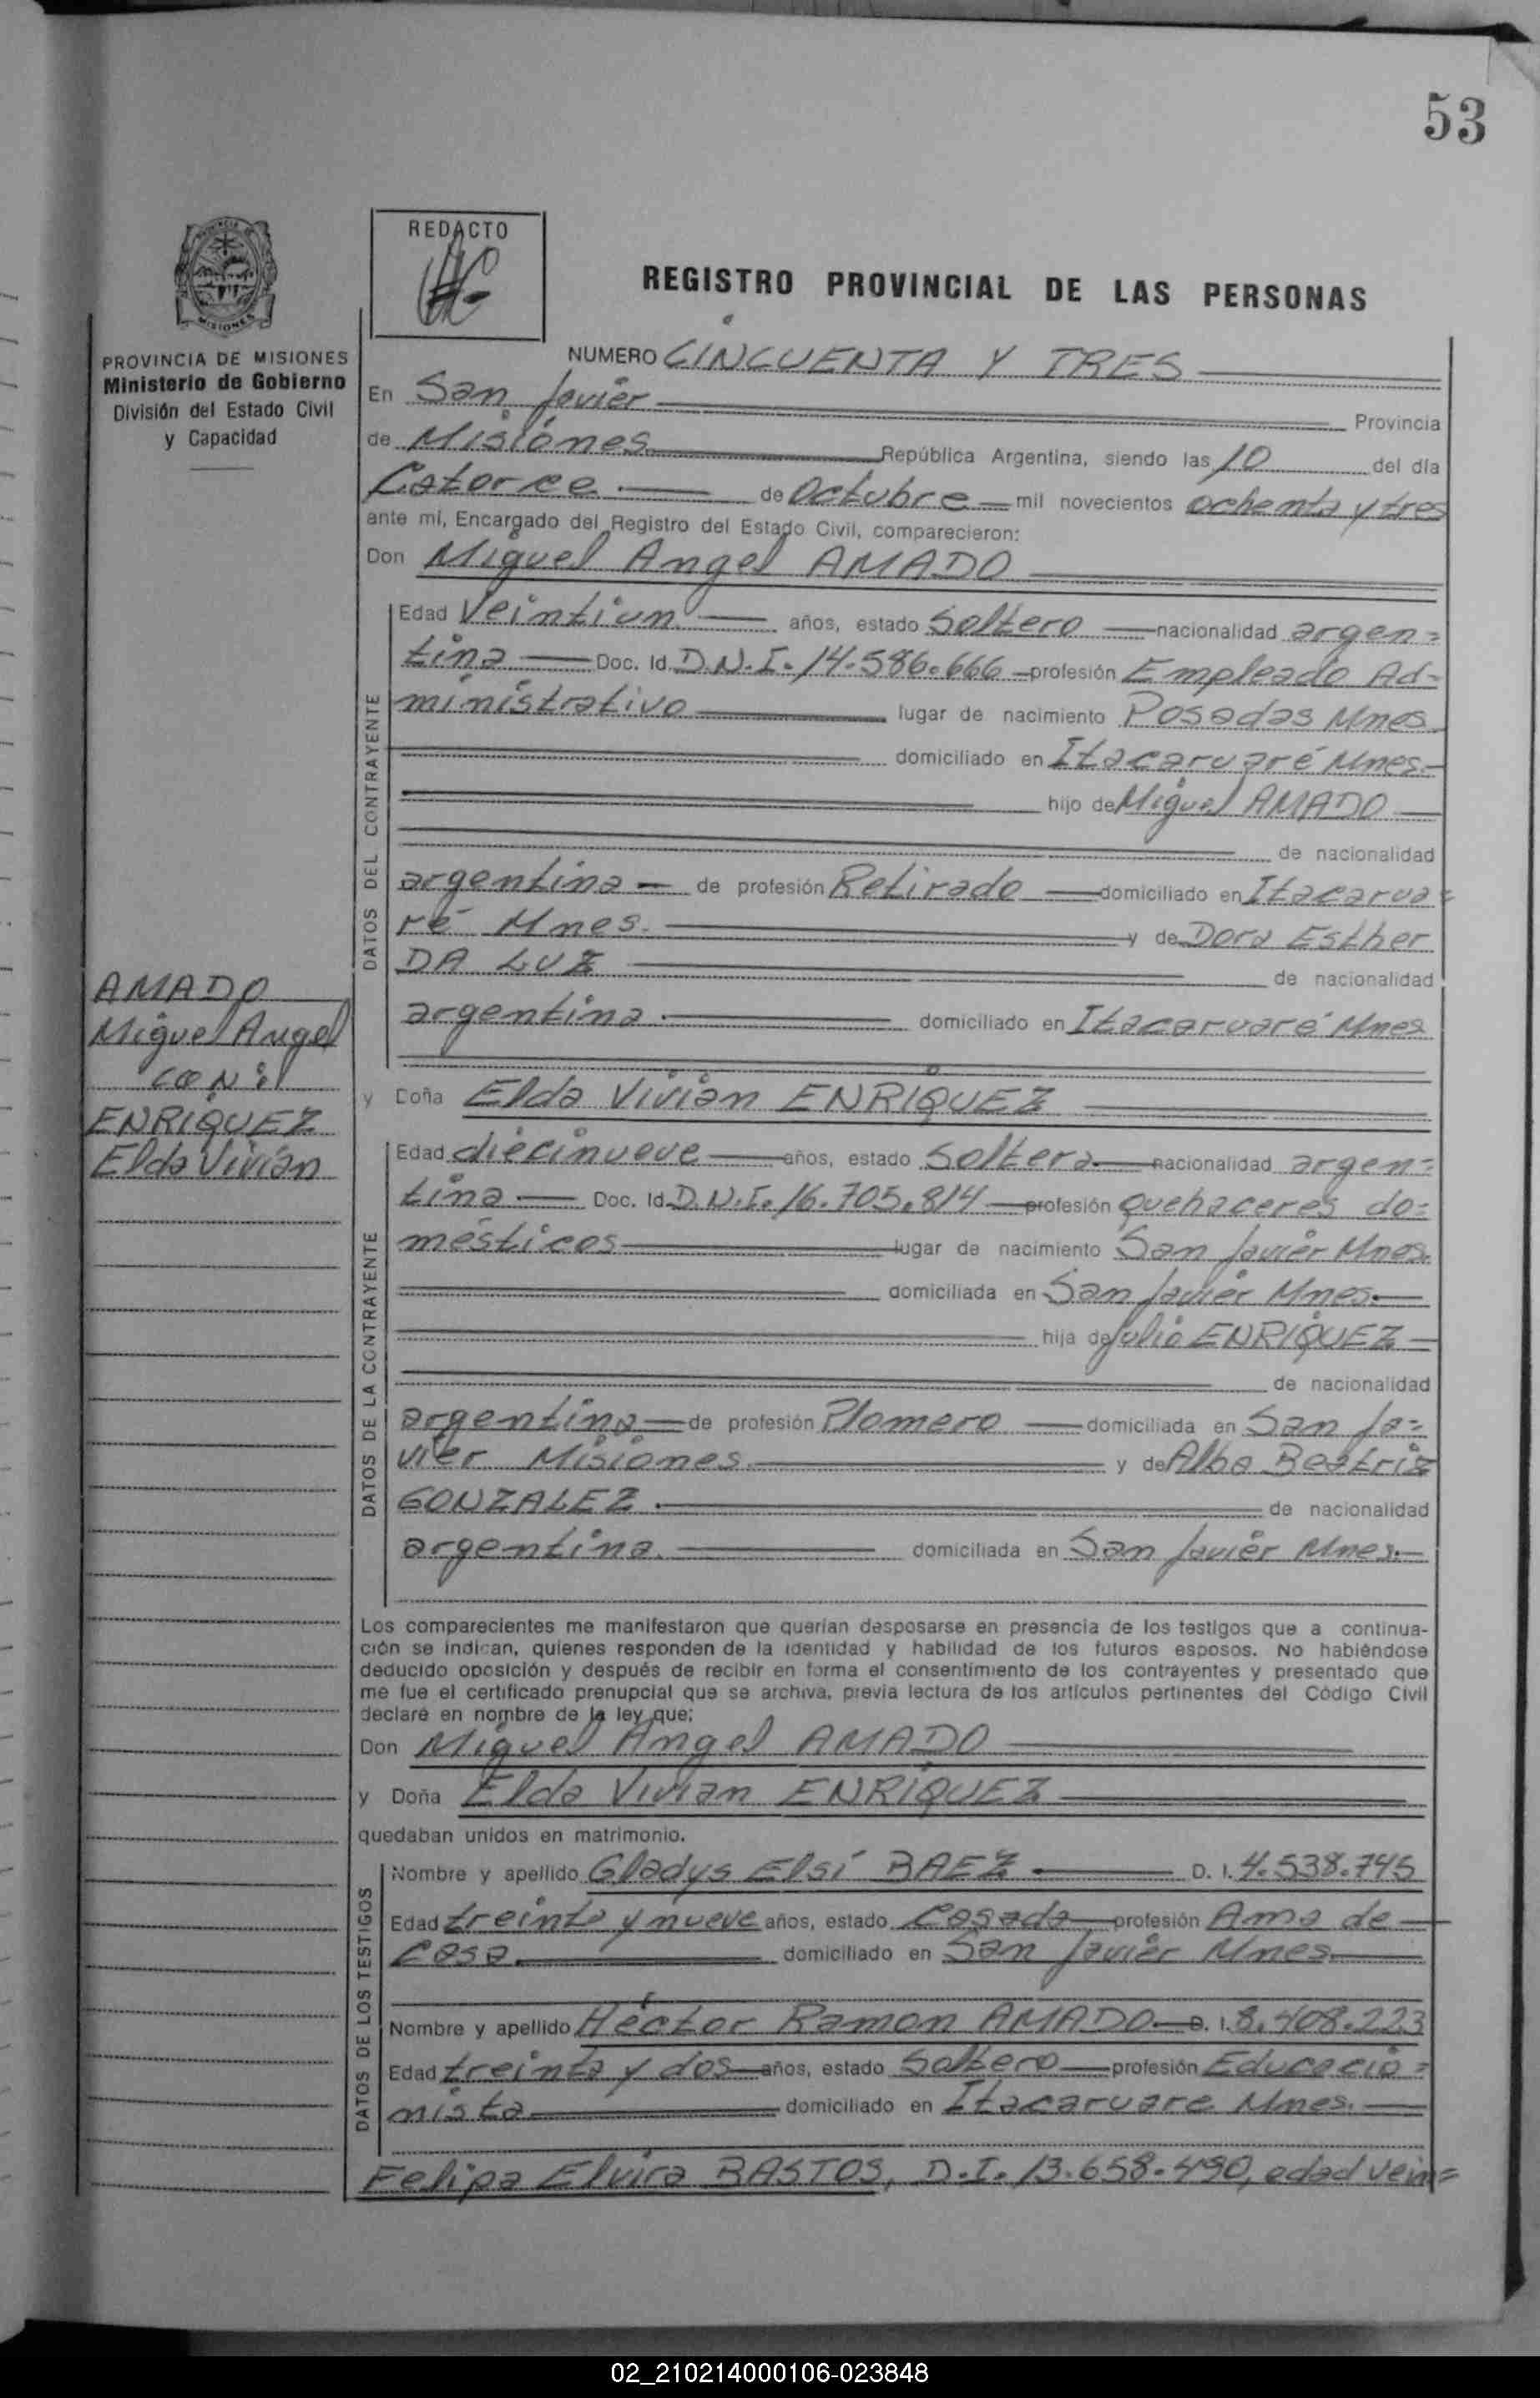 53
REDACTO
REGISTRO PROVINCIAL DE LAS PERSONAS
PROVINCIA DE MISIONES
Ministerio de Gobierno
División del Estado Civil
y Capacidad
NUMERO CINCUENTA Y TRES
En San Javier Provincia
de Misiones República Argentina, siendo las 10 del día
Catorce de Octubre mil novecientos ochenta y tres
ante mí, Encargado del Registro del Estado Civil, comparecieron:
Don Miguel Angel AMADO
Edad Veintiun años, estado Soltero nacionalidad argen=
tina Doc. Id. D.N.I. 14.586.666 profesión Empleado Ad=
ministrativo lugar de nacimiento Posadas Mnes
domiciliado en Itacaruaré Mnes.
hijo de Miguel AMADO
de nacionalidad
argentina de profesión Retirado domiciliado en Itacarua=
ré Mnes. y de Dora Esther
DA LUZ de nacionalidad
argentina domiciliado en Itacaruaré Mnes
DATOS DEL CONTRAYENTE
AMADO
Miguel Angel
CON:
ENRIQUEZ
Elda Vivian
y Doña Elda Vivian ENRIQUEZ
Edad diecinueve años, estado Soltera nacionalidad argen=
tina Doc. Id. D.N.I. 16.705.814 profesión quehaceres do=
mésticos lugar de nacimiento San Javier Mnes.
domiciliada en San Javier Mnes.
hija de Julio ENRIQUEZ
de nacionalidad
argentina de profesión Plomero domiciliada en San Ja=
vier Misiones y de Alba Beatriz
GONZALEZ de nacionalidad
argentina. domiciliada en San Javier Mnes.
DATOS DE LA CONTRAYENTE
Los comparecientes me manifestaron que querían desposarse en presencia de los testigos que a continua-
ción se indican, quienes responden de la identidad y habilidad de los futuros esposos. No habiéndose
deducido oposición y después de recibir en forma el consentimiento de los contrayentes y presentado que
me fue el certificado prenupcial que se archiva, previa lectura de los artículos pertinentes del Código Civil
declaré en nombre de la ley que:
Don Miguel Angel AMADO
y Doña Elda Vivian ENRIQUEZ
quedaban unidos en matrimonio.
Nombre y apellido Gladys Elsi BAEZ D. I. 4.538.745
Edad treinta y nueve años, estado Casada profesión Ama de
Casa. domiciliado en San Javier Mnes.
Nombre y apellido Héctor Ramon AMADO D. I. 8.408.223
Edad treinta y dos años, estado Soltero profesión Educacio=
nista domiciliado en Itacaruare Mnes.
DATOS DE LOS TESTIGOS
Felipa Elvira BASTOS, D.I. 13.658.490, edad vein=
02_210214000106-023848